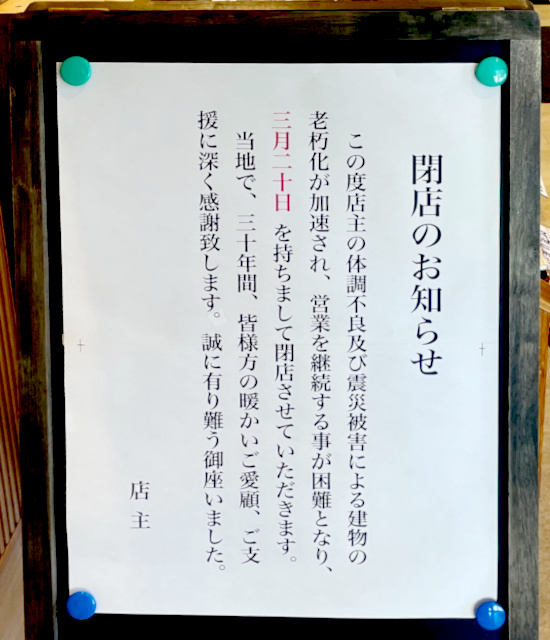 閉店のお知らせ
この度店主の体調不良及び震災被害による建物の
老朽化が加速され、営業を継続する事が困難となり、
三月二十日を持ちまして閉店させていただきます。
当地で、三十年間、皆様方の暖かいご愛顧、ご支
援に深く感謝致します。誠に有り難う御座いました。
店主